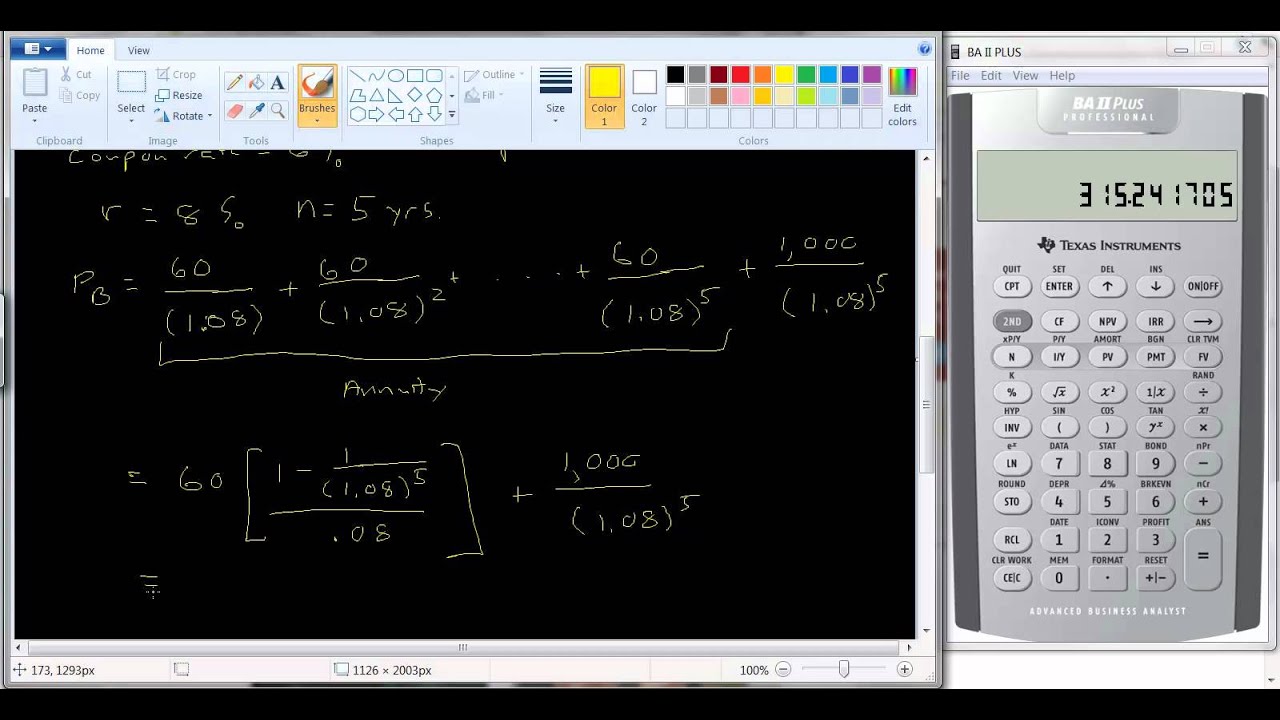 BA II PLUS
Home View
File Edit View Help
Paste
Cut
Copy
Select
Crop
Resize
Rotate
A
Brushes
Outline
Fill
Size
Color 1
Color 2
Edit colors
Clipboard Image Tools Shapes Colors
Coupon rate = 6%
r = 8% n = 5 yrs.
P_B = 60/(1.08) + 60/(1.08)^2 + . . . . + 60/(1.08)^5 + 1,000/(1.08)^5
Annuity
= 60 [ (1 - 1/(1.08)^5) / .08 ] + 1,000/(1.08)^5
=
173, 1293px 1126 × 2003px 100%
BA II PLUS
PROFESSIONAL
315.241705
TEXAS INSTRUMENTS
QUIT SET DEL INS
CPT ENTER ↑ ↓ ON|OFF
2ND CF NPV IRR →
xP/Y P/Y AMORT BGN CLR TVM
N I/Y PV PMT FV
K RAND
% √x x² 1/x ÷
HYP SIN COS TAN x!
INV ( ) yˣ ×
eˣ DATA STAT BOND nPr
LN 7 8 9 −
ROUND DEPR Δ% BRKEVN nCr
STO 4 5 6 +
DATE ICONV PROFIT ANS
RCL 1 2 3 =
CLR WORK MEM FORMAT RESET
CE|C 0 . +|−
ADVANCED BUSINESS ANALYST